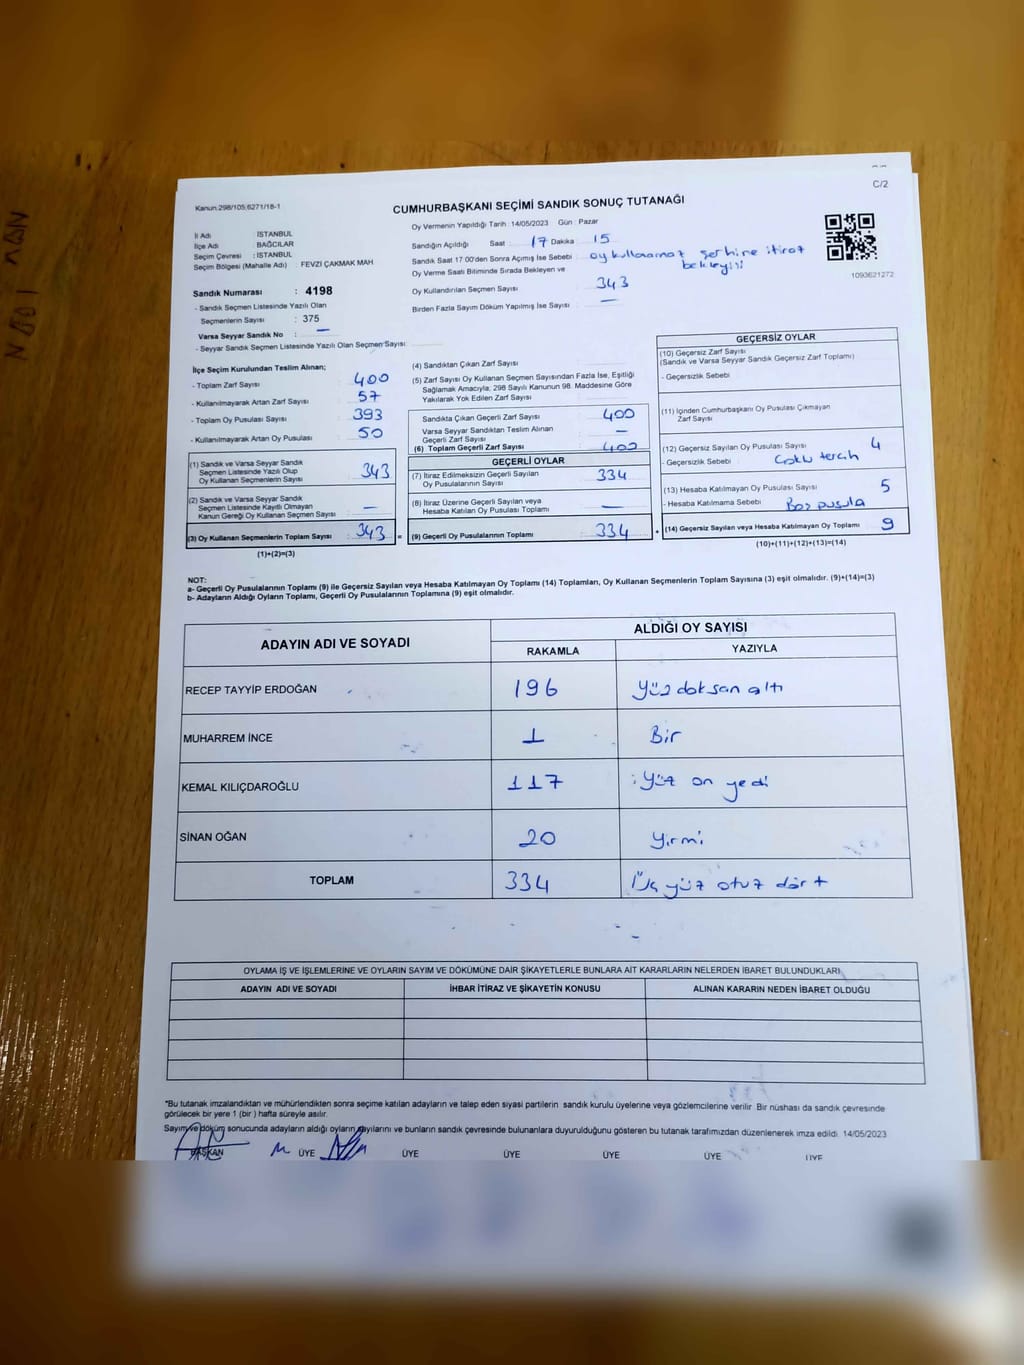 C/2
Kanun.298/105;6271/18-1
CUMHURBAŞKANI SEÇİMİ SANDIK SONUÇ TUTANAĞI
İl Adı : İSTANBUL
İlçe Adı : BAĞCILAR
Seçim Çevresi : İSTANBUL
Seçim Bölgesi (Mahalle Adı) : FEVZİ ÇAKMAK MAH.
Oy Vermenin Yapıldığı Tarih : 14/05/2023 Gün : Pazar
Sandığın Açıldığı Saat 17 Dakika 15
Sandık Saat 17:00'den Sonra Açımış İse Sebebi : oy kullanamaz şerhine itiraz
bekleyişi
Oy Verme Saati Bitiminde Sırada Bekleyen ve
Oy Kullandırılan Seçmen Sayısı : 343
Birden Fazla Sayım Döküm Yapılmış İse Sayısı : —
1093621272
Sandık Numarası : 4198
- Sandık Seçmen Listesinde Yazılı Olan
Seçmenlerin Sayısı : 375
Varsa Seyyar Sandık No : —
- Seyyar Sandık Seçmen Listesinde Yazılı Olan Seçmen Sayısı:
İlçe Seçim Kurulundan Teslim Alınan;
- Toplam Zarf Sayısı : 400
- Kullanılmayarak Artan Zarf Sayısı : 57
- Toplam Oy Pusulası Sayısı : 393
- Kullanılmayarak Artan Oy Pusulası : 50
(1) Sandık ve Varsa Seyyar Sandık
Seçmen Listesinde Yazılı Olup
Oy Kullanan Seçmenlerin Sayısı : 343
(2) Sandık ve Varsa Seyyar Sandık
Seçmen Listesinde Kayıtlı Olmayan
Kanun Gereği Oy Kullanan Seçmen Sayısı : —
(3) Oy Kullanan Seçmenlerin Toplam Sayısı : 343 =
(1)+(2)=(3)
(4) Sandıktan Çıkan Zarf Sayısı :
(5) Zarf Sayısı Oy Kullanan Seçmen Sayısından Fazla İse, Eşitliği
Sağlamak Amacıyla; 298 Sayılı Kanunun 98. Maddesine Göre
Yakılarak Yok Edilen Zarf Sayısı :
Sandıkta Çıkan Geçerli Zarf Sayısı : 400
Varsa Seyyar Sandıktan Teslim Alınan
Geçerli Zarf Sayısı : —
(6) Toplam Geçerli Zarf Sayısı :
GEÇERLİ OYLAR
(7) İtiraz Edilmeksizin Geçerli Sayılan
Oy Pusulalarının Sayısı : 334
(8) İtiraz Üzerine Geçerli Sayılan veya
Hesaba Katılan Oy Pusulası Toplamı : —
(9) Geçerli Oy Pusulalarının Toplamı : 334 +
GEÇERSİZ OYLAR
(10) Geçersiz Zarf Sayısı :
(Sandık ve Varsa Seyyar Sandık Geçersiz Zarf Toplamı)
- Geçersizlik Sebebi :
(11) İçinden Cumhurbaşkanı Oy Pusulası Çıkmayan
Zarf Sayısı :
(12) Geçersiz Sayılan Oy Pusulası Sayısı : 4
- Geçersizlik Sebebi : Çoklu tercih
(13) Hesaba Katılmayan Oy Pusulası Sayısı : 5
- Hesaba Katılmama Sebebi : Boş pusula
(14) Geçersiz Sayılan veya Hesaba Katılmayan Oy Toplamı : 9
(10)+(11)+(12)+(13)=(14)
NOT:
a- Geçerli Oy Pusulalarının Toplamı (9) ile Geçersiz Sayılan veya Hesaba Katılmayan Oy Toplamı (14) Toplamları, Oy Kullanan Seçmenlerin Toplam Sayısına (3) eşit olmalıdır. (9)+(14)=(3)
b- Adayların Aldığı Oyların Toplamı, Geçerli Oy Pusulalarının Toplamına (9) eşit olmalıdır.
ADAYIN ADI VE SOYADI
ALDIĞI OY SAYISI
RAKAMLA YAZIYLA
RECEP TAYYİP ERDOĞAN 196 Yüz doksan altı
MUHARREM İNCE 1 Bir
KEMAL KILIÇDAROĞLU 117 Yüz on yedi
SİNAN OĞAN 20 Yirmi
TOPLAM 334 Üç yüz otuz dört
OYLAMA İŞ VE İŞLEMLERİNE VE OYLARIN SAYIM VE DÖKÜMÜNE DAİR ŞİKAYETLERLE BUNLARA AİT KARARLARIN NELERDEN İBARET BULUNDUKLARI
ADAYIN ADI VE SOYADI İHBAR İTİRAZ VE ŞİKAYETİN KONUSU ALINAN KARARIN NEDEN İBARET OLDUĞU
*Bu tutanak imzalandıktan ve mühürlendikten sonra seçime katılan adayların ve talep eden siyasi partilerin sandık kurulu üyelerine veya gözlemcilerine verilir. Bir nüshası da sandık çevresinde
görülecek bir yere 1 (bir) hafta süreyle asılır.
Sayım ve döküm sonucunda adayların aldığı oyların sayılarını ve bunların sandık çevresinde bulunanlara duyurulduğunu gösteren bu tutanak tarafımızdan düzenlenerek imza edildi. 14/05/2023
BAŞKAN ÜYE ÜYE ÜYE ÜYE ÜYE ÜYE